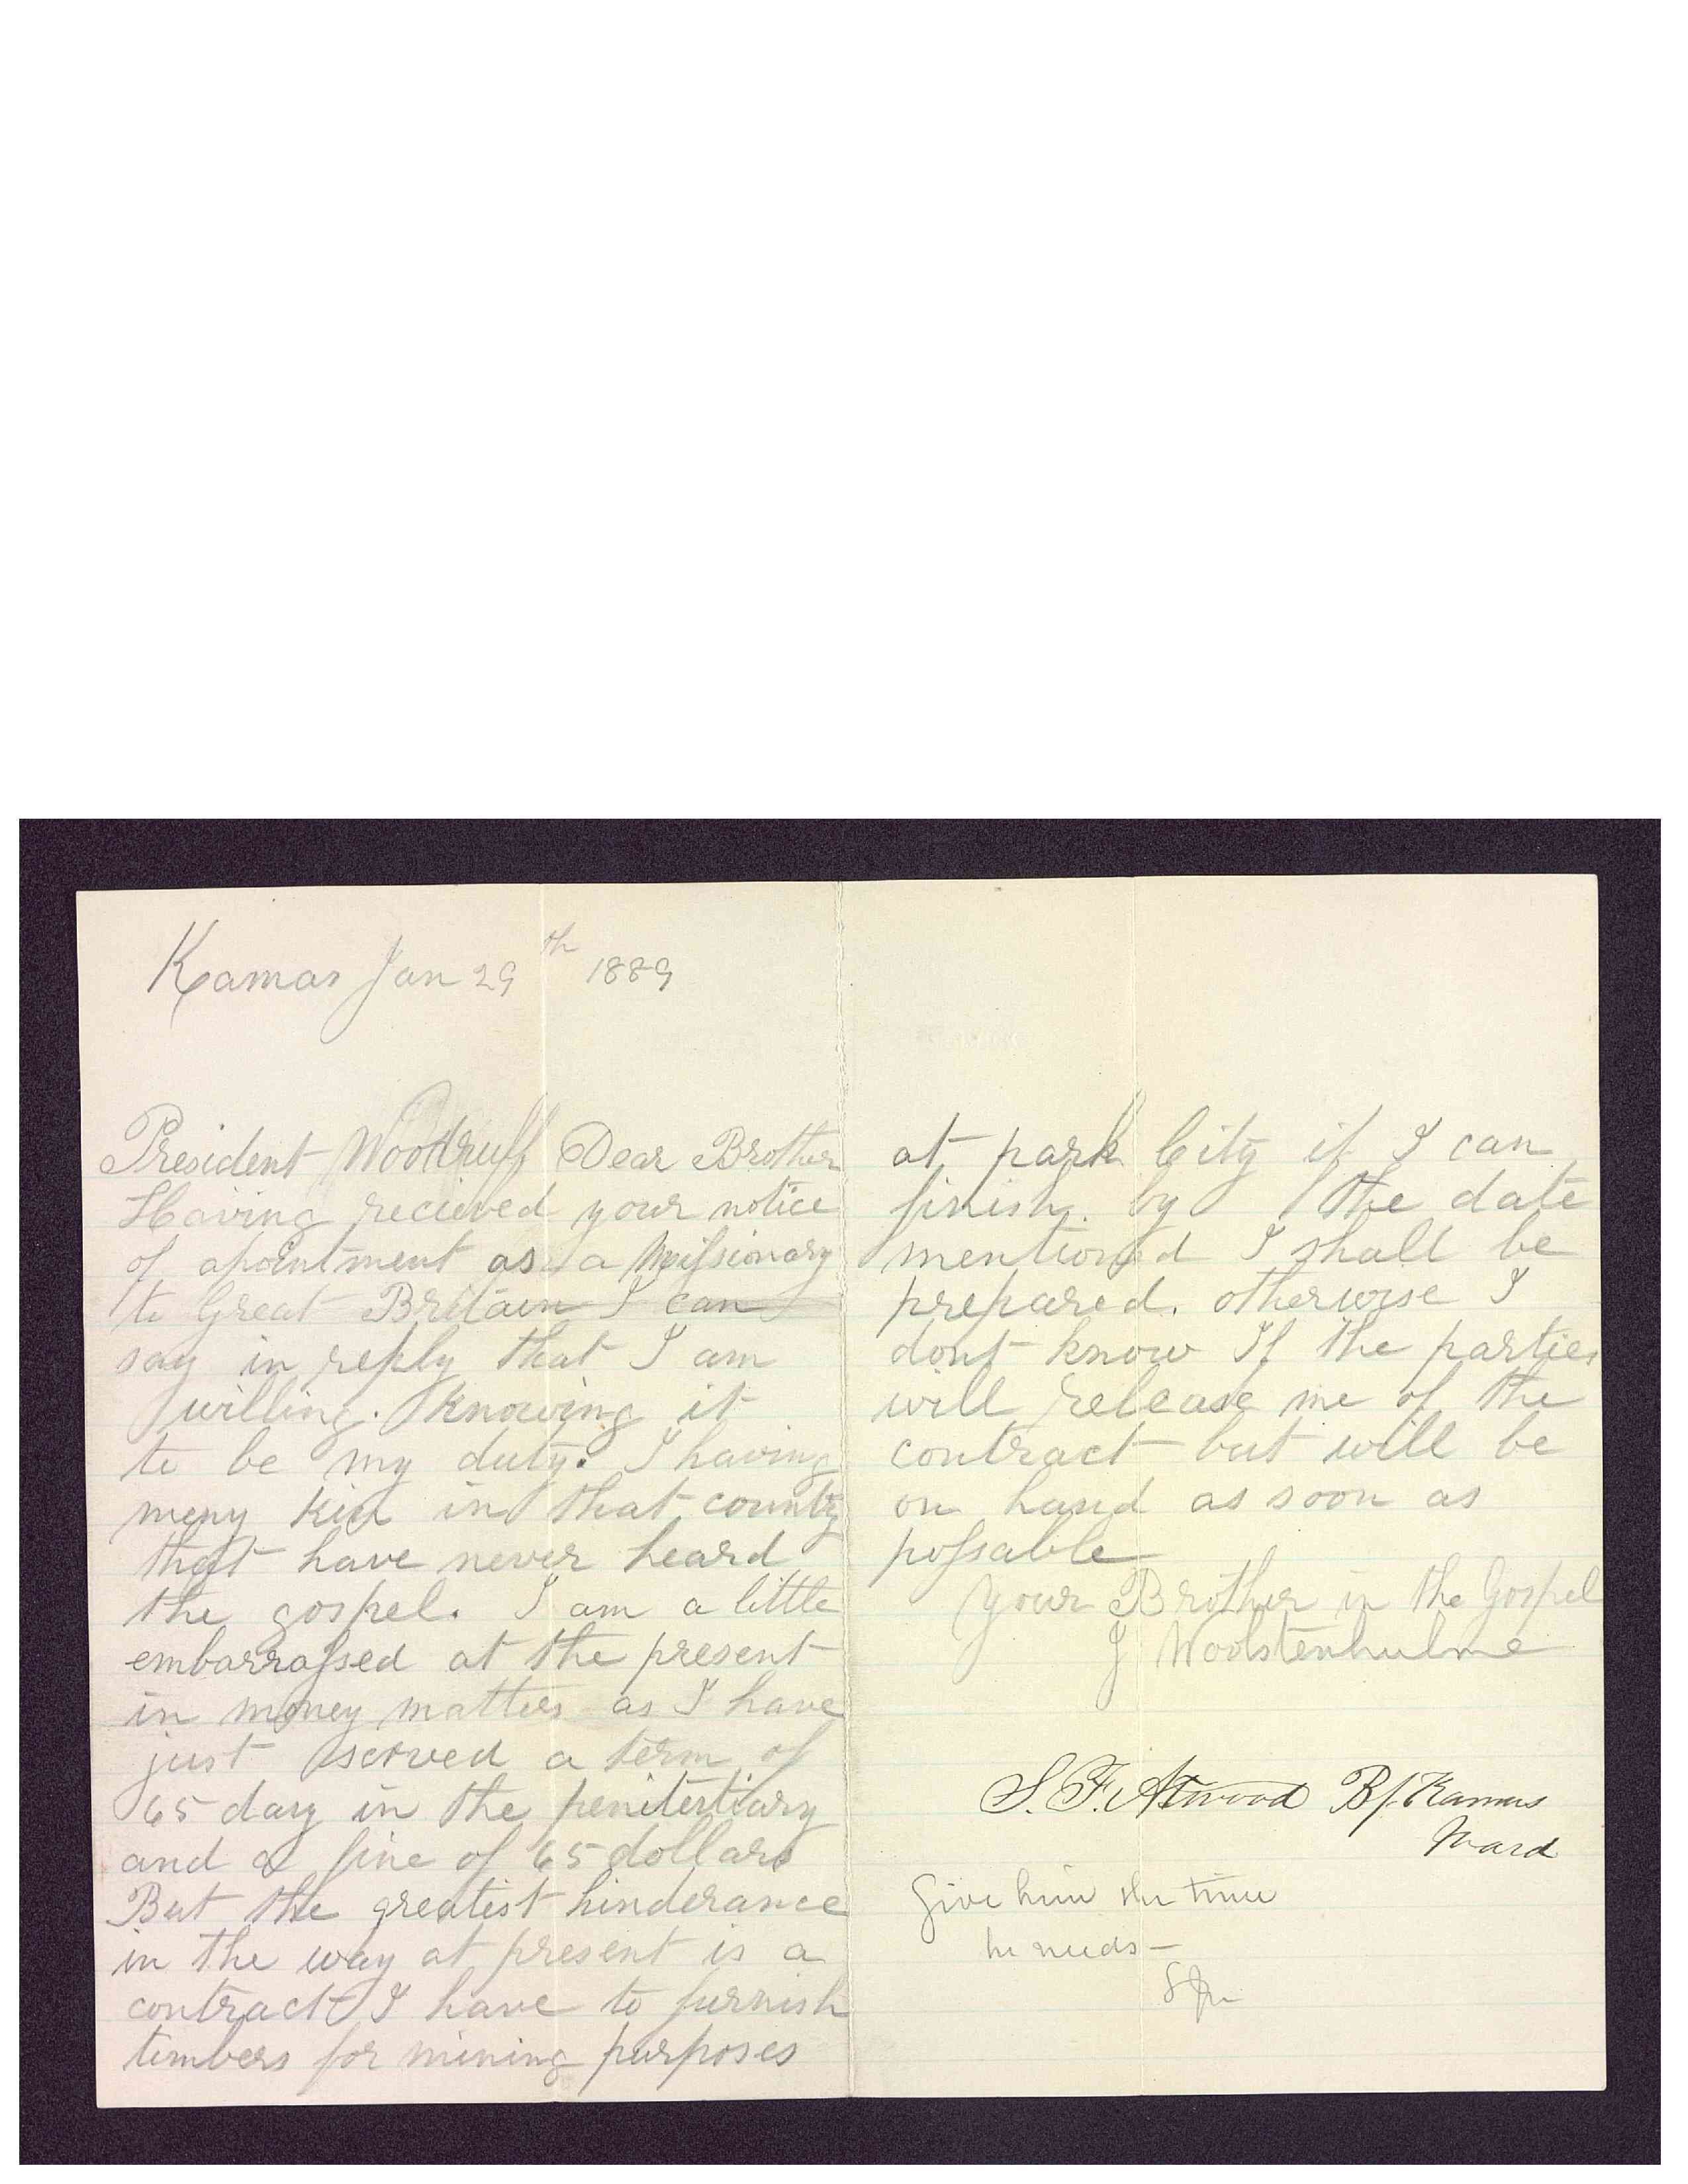 Kamas Jan 29th 1889
President Woodruff Dear Brother
Having recieved your notice
of apointment as a Missionary
to Great Britain I can
say in reply that I am
willing. Knowing it
to be my duty. I having
meny kin in that country
that have never heard
the gospel. I am a little
embarrassed at the present
in money matters as I have
just served a term of
65 day in the penitertiary
and a fine of 65 dollars
But the greatist hinderance
in the way at present is a
contract I have to furnish
timbers for mining purposes
at park City if I can
finish. by the date
mentioned I shall be
prepared. otherwise I
dont know If the parties
will release me of the
contract but will be
on hand as soon as
possable
Your Brother in the Gospel
J Woolstenhulme
S. F. Atwood Bp. Kamas
Ward
Give him the time
he needs—